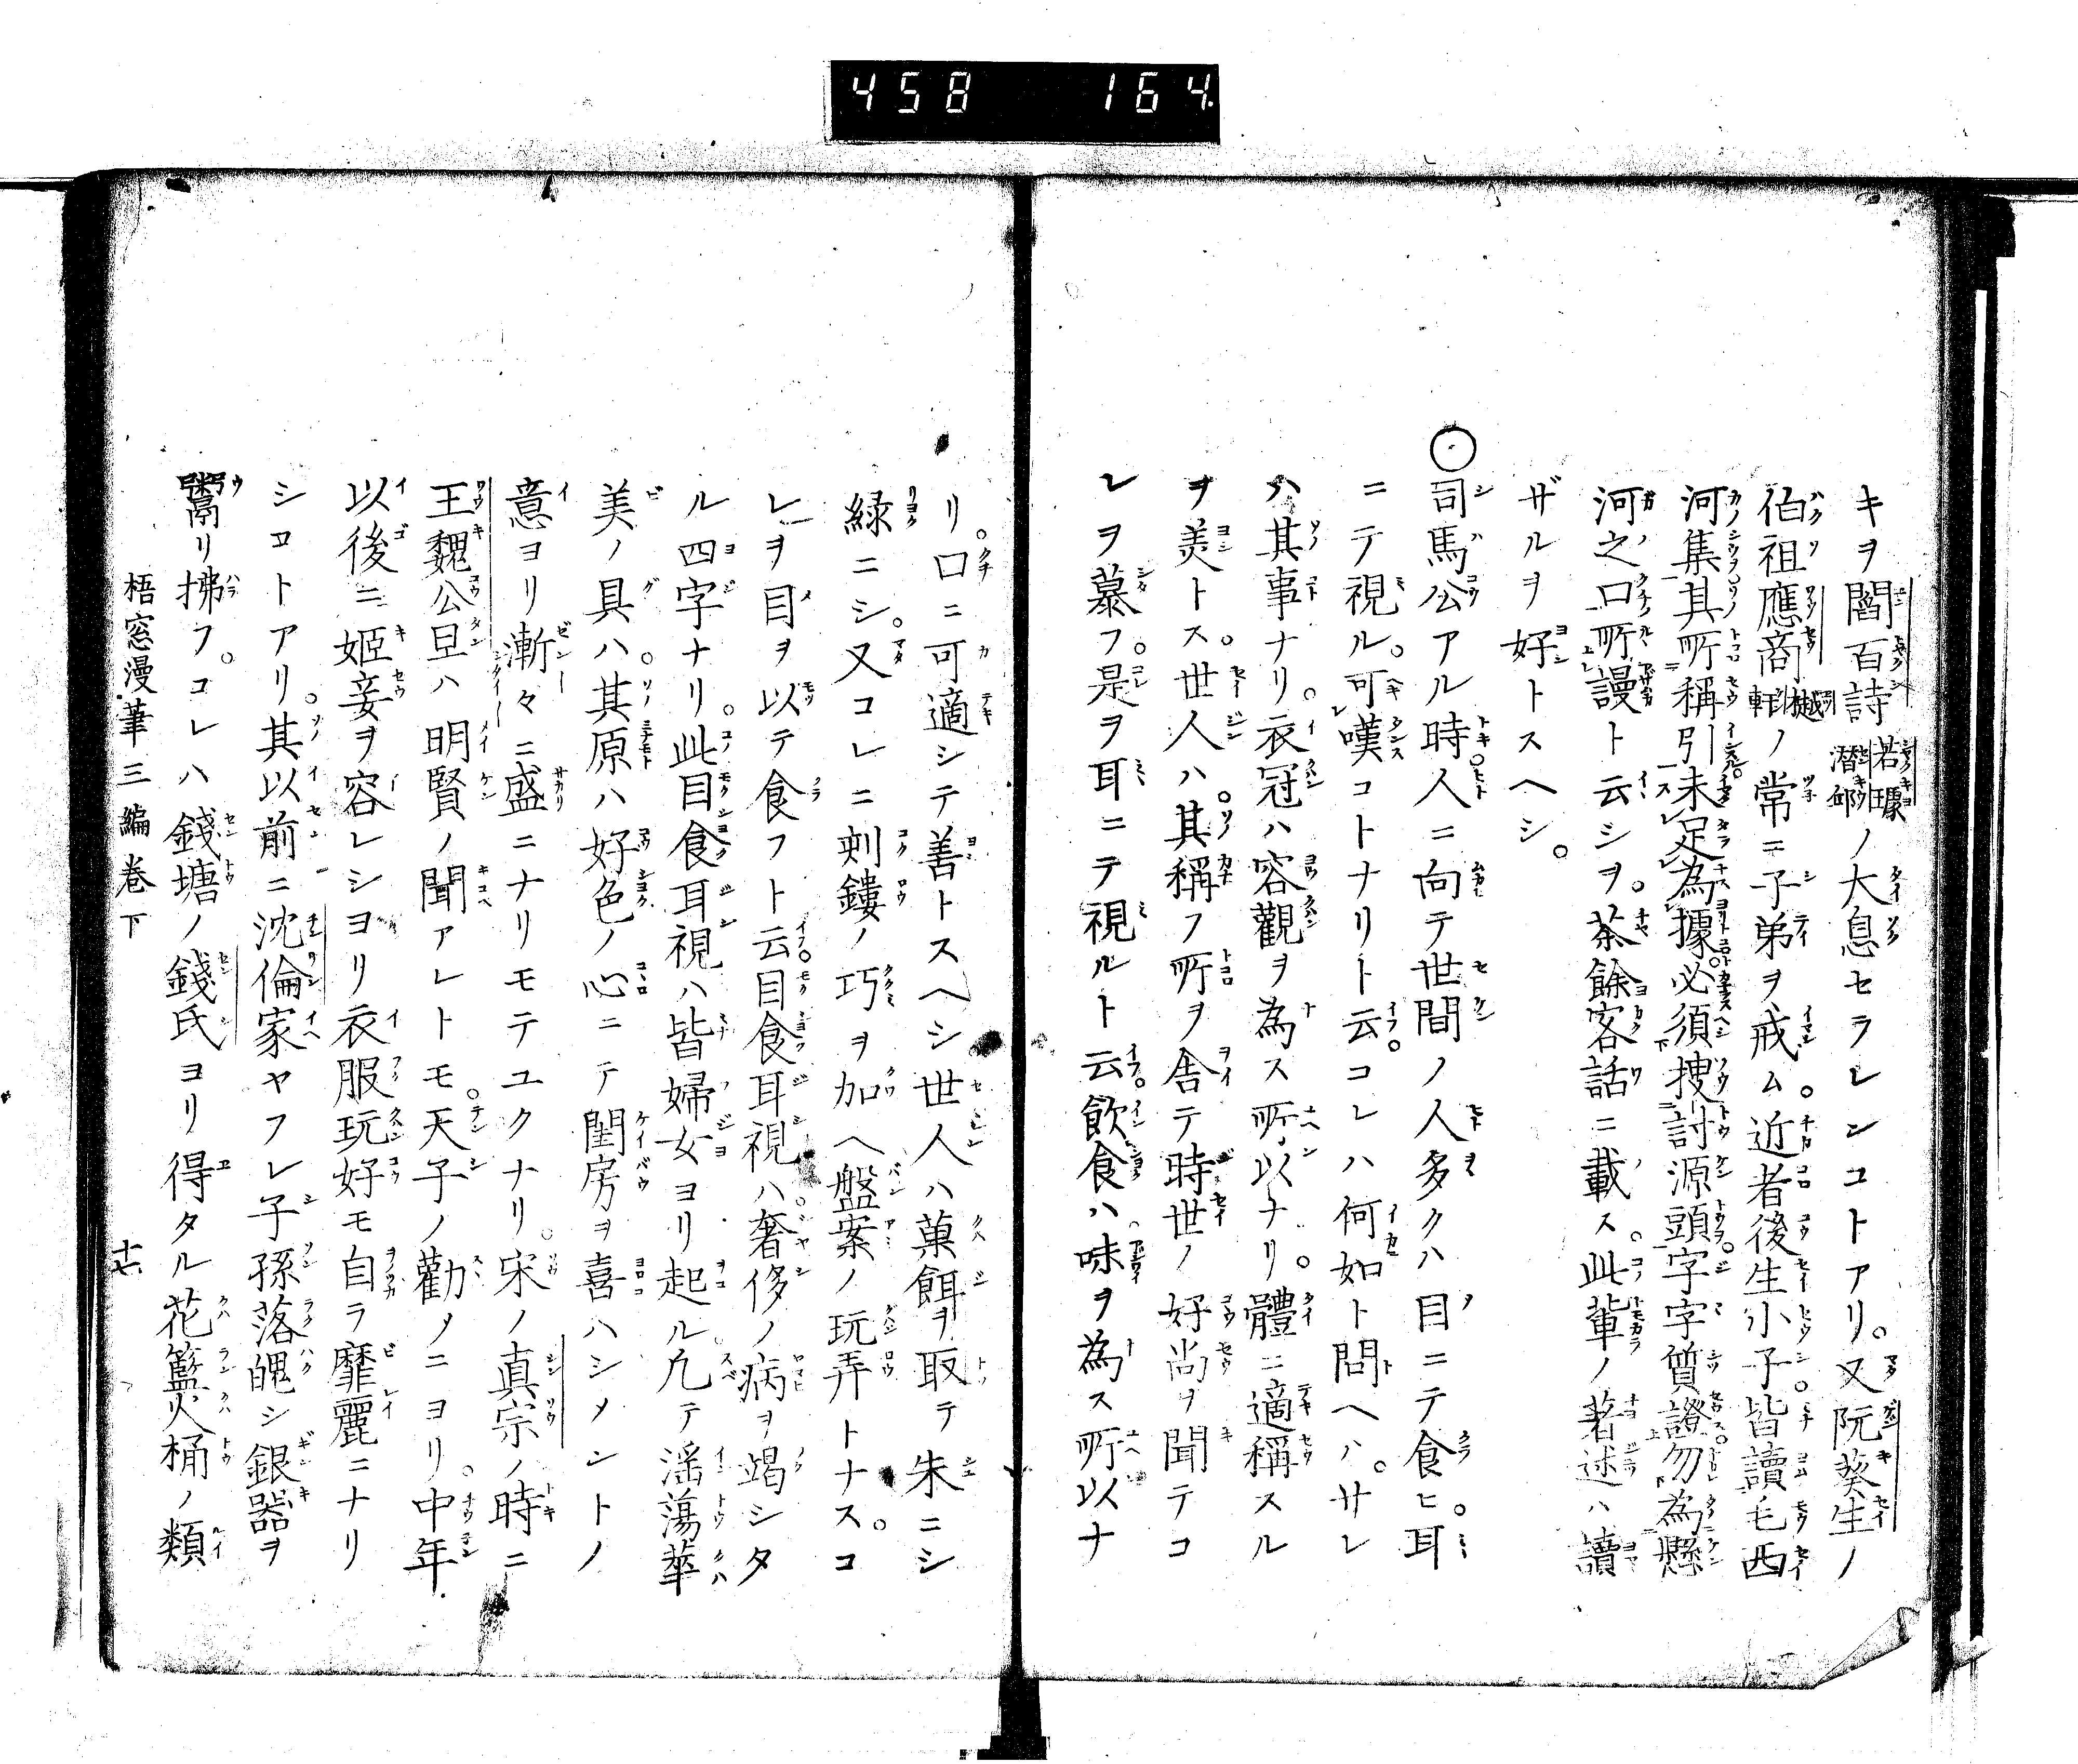 458 164
キヲ閻百詩若璩潜邱ノ大息セラレンコトアリ。又阮葵生ノ
伯祖應商樾軒ノ常ニ子弟ヲ戒ム。近者後生小子皆讀毛西
河集其所稱引未足為據必須捜討源頭字字質證勿為懸
河之口所謾ト云シヲ。茶餘客話ニ載ス。此軰ノ著述ハ讀
ザルヲ好トスヘシ。
○司馬公アル時人ニ向テ世間ノ人多クハ目ニテ食ヒ。耳
ニテ視ル。可嘆コトナリト云。コレハ何如ト問ヘハ。サレ
ハ其事ナリ。衣冠ハ容觀ヲ為ス所以ナリ。體ニ適稱スル
ヲ美トス。世人ハ。其稱フ所ヲ舎テ時世ノ好尚ヲ聞テコ
レヲ慕フ。是ヲ耳ニテ視ルト云。飲食ハ味ヲ為ス所以ナ
リ。口ニ可適シテ善トスヘシ世人ハ菓餌ヲ取テ朱ニシ
緑ニシ。又コレニ刺鏤ノ巧ヲ加ヘ盤案ノ玩弄トナス。コ
レヲ目ヲ以テ食フト云。目食耳視ハ。奢侈ノ病ヲ竭シタ
ル四字ナリ。此目食耳視ハ皆婦女ヨリ起ル。凢テ滛蕩華
美ノ具ハ。其原ハ好色ノ心ニテ閨房ヲ喜ハシメントノ
意ヨリ漸々ニ盛ニナリモテユクナリ。宋ノ真宗ノ時ニ
王魏公旦ハ明賢ノ聞アレトモ。天子ノ勸メニヨリ。中年
以後ニ姬妾ヲ容レシヨリ衣服玩好モ自ラ靡麗ニナリ
シコトアリ。其以前ニ沈倫家ヤフレ子孫落魄シ銀器ヲ
鬻リ拂フ。コレハ錢塘ノ錢氏ヨリ得タル花籃火桶ノ類
梧窓漫筆三編巻下 十七